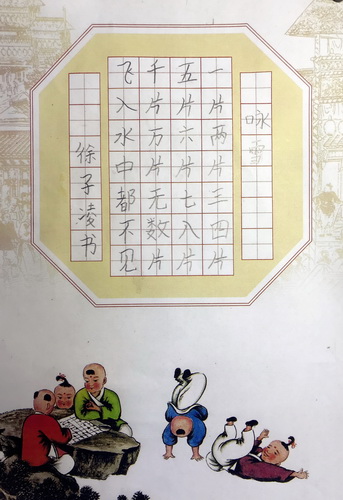 咏雪
一片两片三四片
五片六片七八片
千片万片无数片
飞入水中都不见
徐子凌书